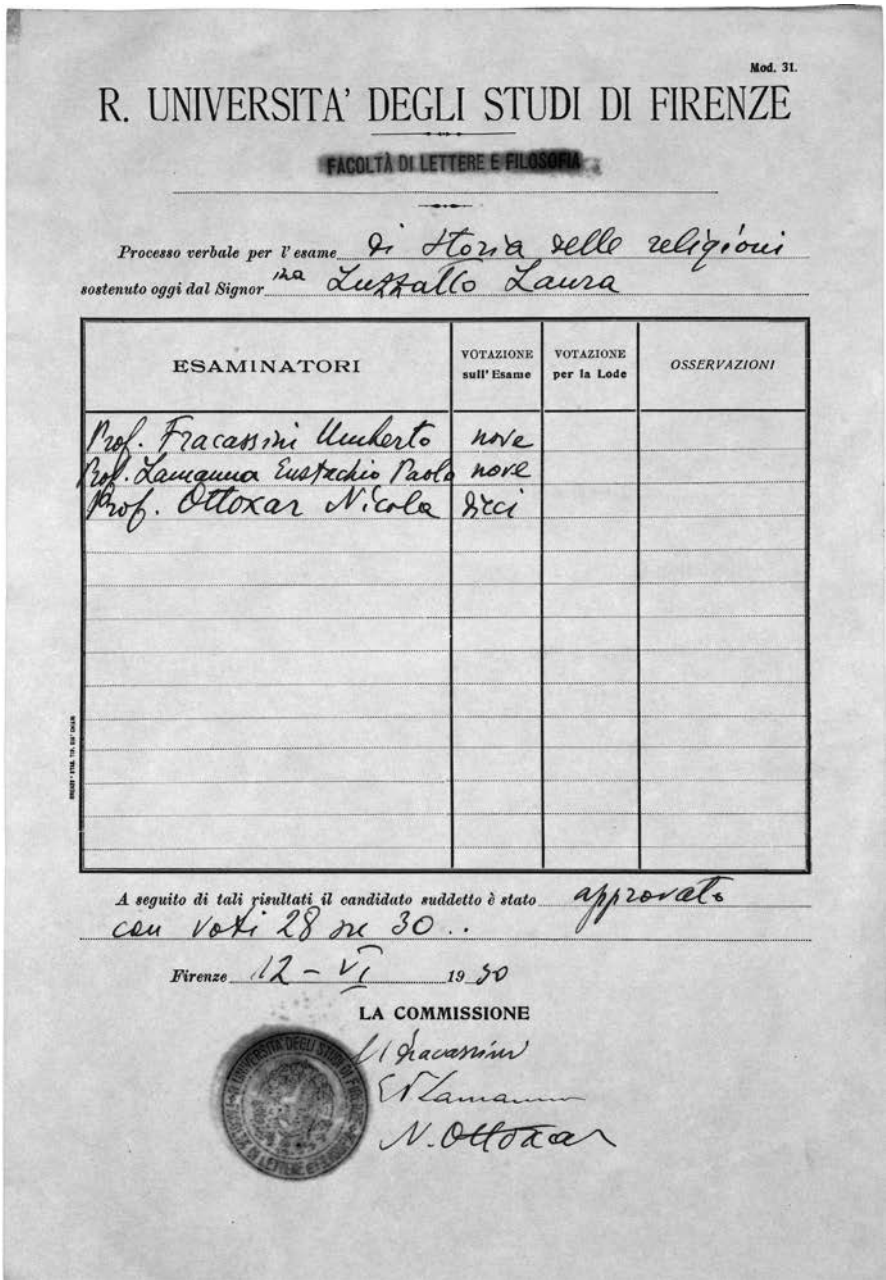 Mod. 31.
R. UNIVERSITA' DEGLI STUDI DI FIRENZE
FACOLTÀ DI LETTERE E FILOSOFIA
Processo verbale per l'esame di Storia delle religioni
sostenuto oggi dal Signor ina Luzzatto Laura
ESAMINATORI
VOTAZIONE sull'Esame
VOTAZIONE per la Lode
OSSERVAZIONI
Prof. Fracassini Umberto nove
Prof. Lamanna Eustachio Paolo nove
Prof. Ottokar Nicola dieci
A seguito di tali risultati il candidato suddetto è stato approvato
con voti 28 su 30..
Firenze 12 - VI 1930
LA COMMISSIONE
U Fracassini
EP Lamanna
N. Ottokar